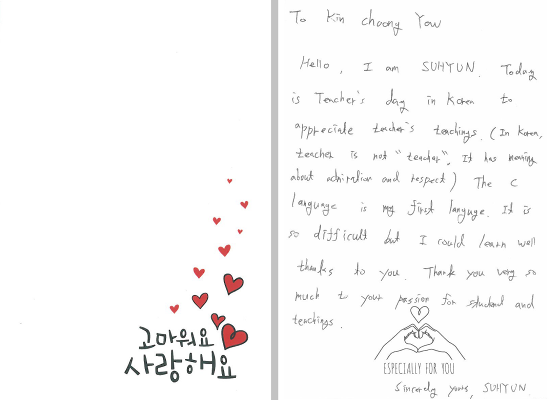 고마워요
사랑해요
To Kin choong Yow
Hello, I am SUHYUN. Today
is Teacher's day in Korea to
appreciate teacher's teachings. (In Korea,
teacher is not "teacher". It has meaning
about admiration and respect) The C
language is my first languge. It is
so difficult but I could learn well
thanks to you. Thank you very so
much to your passion for student and
teachings.
ESPECIALLY FOR YOU
Sincerely yours, SUHYUN